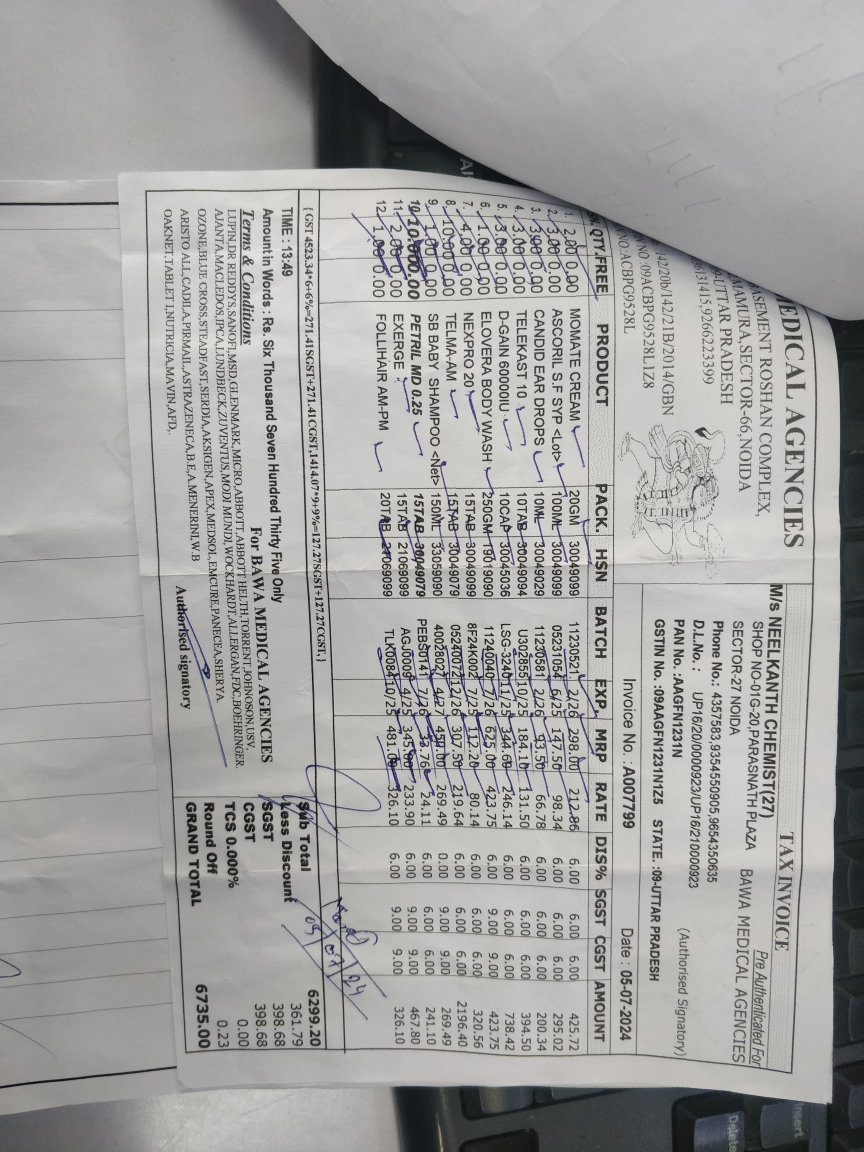 MEDICAL AGENCIES
BASEMENT ROSHAN COMPLEX,
MAMURA,SECTOR-66,NOIDA
UTTAR PRADESH
,9266223399
142/20b/142/21B/2014/GBN
NO :09ACBPG9528L1Z8
NO:ACBPG9528L
TAX INVOICE
Pre Authenticated For
M/s NEELKANTH CHEMIST(27)
SHOP NO-01G-20,PARASNATH PLAZA BAWA MEDICAL AGENCIES
SECTOR-27 NOIDA
Phone No.: 4357583,9354550905,9654350635
D.L.No.: UP16/20/0000923/UP16/210000923
PAN No. :AAGFN1231N (Authorised Signatory)
GSTIN No. :09AAGFN1231N1Z5 STATE. :09-UTTAR PRADESH
Invoice No. : A007799 Date : 05-07-2024
SN. QTY. FREE PRODUCT PACK. HSN BATCH EXP. MRP RATE DIS% SGST CGST AMOUNT
1. 2.00 0.00 MOMATE CREAM 20GM 30049099 11230521 2/26 298.00 212.86 6.00 6.00 6.00 425.72
2. 3.00 0.00 ASCORIL S.F SYP <Lot> 100ML 30049099 05231054 6/25 147.50 98.34 6.00 6.00 6.00 295.02
3. 3.00 0.00 CANDID EAR DROPS 10ML 30049029 11230581 2/26 93.50 66.78 6.00 6.00 6.00 200.34
4. 3.00 0.00 TELEKAST 10 10TAB 30049094 US02855 10/25 184.10 131.50 6.00 6.00 6.00 394.50
5. 3.00 0.00 D-GAIN 60000IU 10CAP 30045036 LSG-3240 11/25 344.60 246.14 6.00 6.00 6.00 738.42
6. 1.00 0.00 ELOVERA BODY WASH 250GM 19019090 11240040 7/26 625.00 423.75 6.00 9.00 9.00 423.75
7. 4.00 0.00 NEXPRO 20 15TAB 30049099 8F24K002 7/25 112.20 80.14 6.00 6.00 6.00 320.56
8. 10.00 0.00 TELMA-AM 15TAB 30049079 05240072 12/26 307.50 219.64 6.00 6.00 6.00 2196.40
9. 1.00 0.00 SB BABY SHAMPOO <Net> 150ML 33059090 40028027 4/27 450.00 269.49 0.00 9.00 9.00 269.49
10. 10.00 0.00 PETRIL MD 0.25 15TAB 30049079 PEBS0141 7/26 33.76 24.11 6.00 6.00 6.00 241.10
11. 2.00 0.00 EXERGE 15TAB 21069099 AGJ0009 4/25 345.00 233.90 6.00 9.00 9.00 467.80
12. 1.00 0.00 FOLLIHAIR AM-PM 20TAB 21069099 TLK0084 10/25 481.00 326.10 6.00 9.00 9.00 326.10
05/07/24
[GST 4523.34*6+6%=271.41SGST+271.41CGST,1414.07*9+9%=127.27SGST+127.27CGST,]
Sub Total 6299.20
Less Discount 361.79
SGST 398.68
CGST 398.68
TCS 0.000% 0.00
Round Off 0.23
GRAND TOTAL 6735.00
TIME : 13:49
Amount in Words : Rs. Six Thousand Seven Hundred Thirty Five Only
Terms & Conditions For BAWA MEDICAL AGENCIES
LUPIN,DR REDDYS,SANOFI,MSD,GLENMARK,MICRO,ABBOTT,ABBOTT HELTH,TORRENT,JOHNSON,USV,
AJANTA,MACLEDOS,IPCA,LUNDBECK,ZUVENTUS,MODI MUNDI,WOCKHARDT,ALLERGAN,FDC,BOEHRINGER
OZONE,BLUE CROSS,STEADFAST,SERDIA,AKSIGEN,APEX,MEDSOL,EMCURE,PANECEA,SHERYA
ARISTO ALL,CADILA,PIRMAIL,ASTRAZENECA,B.E,A.MENERINI,W.B
OAKNET,TABLET I,NUTRICIA,MAVIN,AFD,
Authorised signatory
Insert
Delete